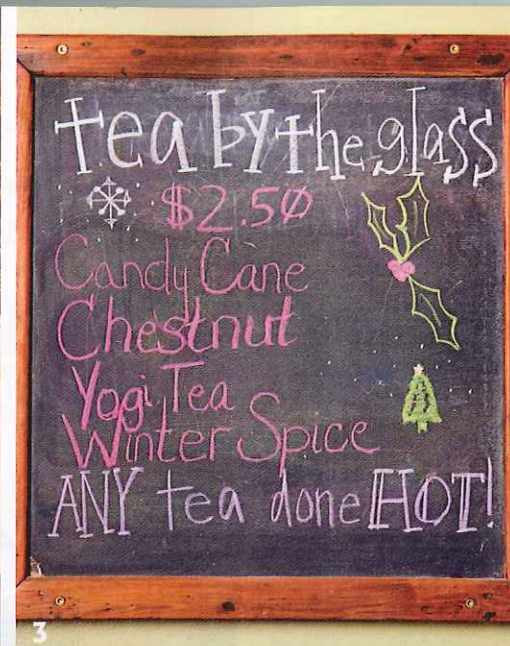 tea by the glass
$2.50
Candy Cane
Chestnut
Yogi Tea
Winter Spice
ANY tea done HOT!
3